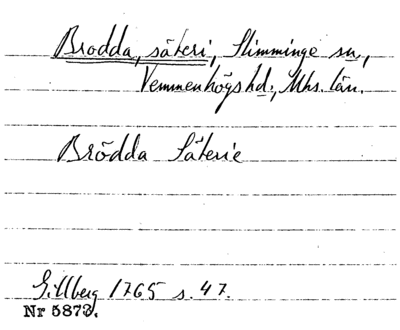 Brodda, säteri, Slimminge sn,
Vemmenhögs hd., Mhs. län.
Brödda Säterie
Gillberg 1765 s. 47.
Nr 5873.